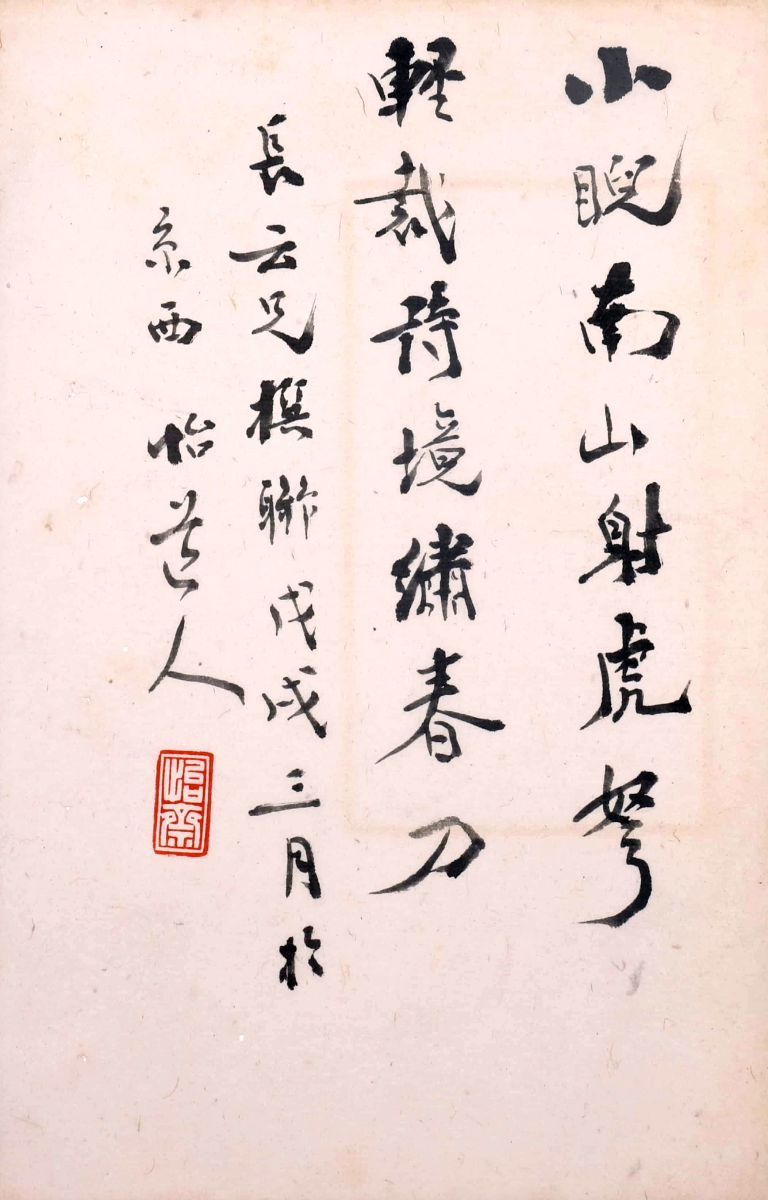 小睨南山射虎弩
軽裁詩境繡春刀
長云兄撰聯戊戌三月於
京西怡道人
怡齋